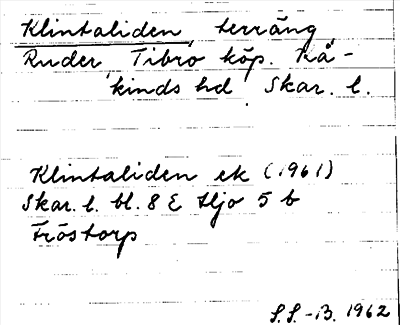 Klintaliden, terräng,
Ruder, Tibro köp. Kå-
kinds hd, Skar. l.
Klintaliden ek (1961)
Skar. l. bl. 8 E Hjo 5 b
Fröstorp
S.S.-B. 1962